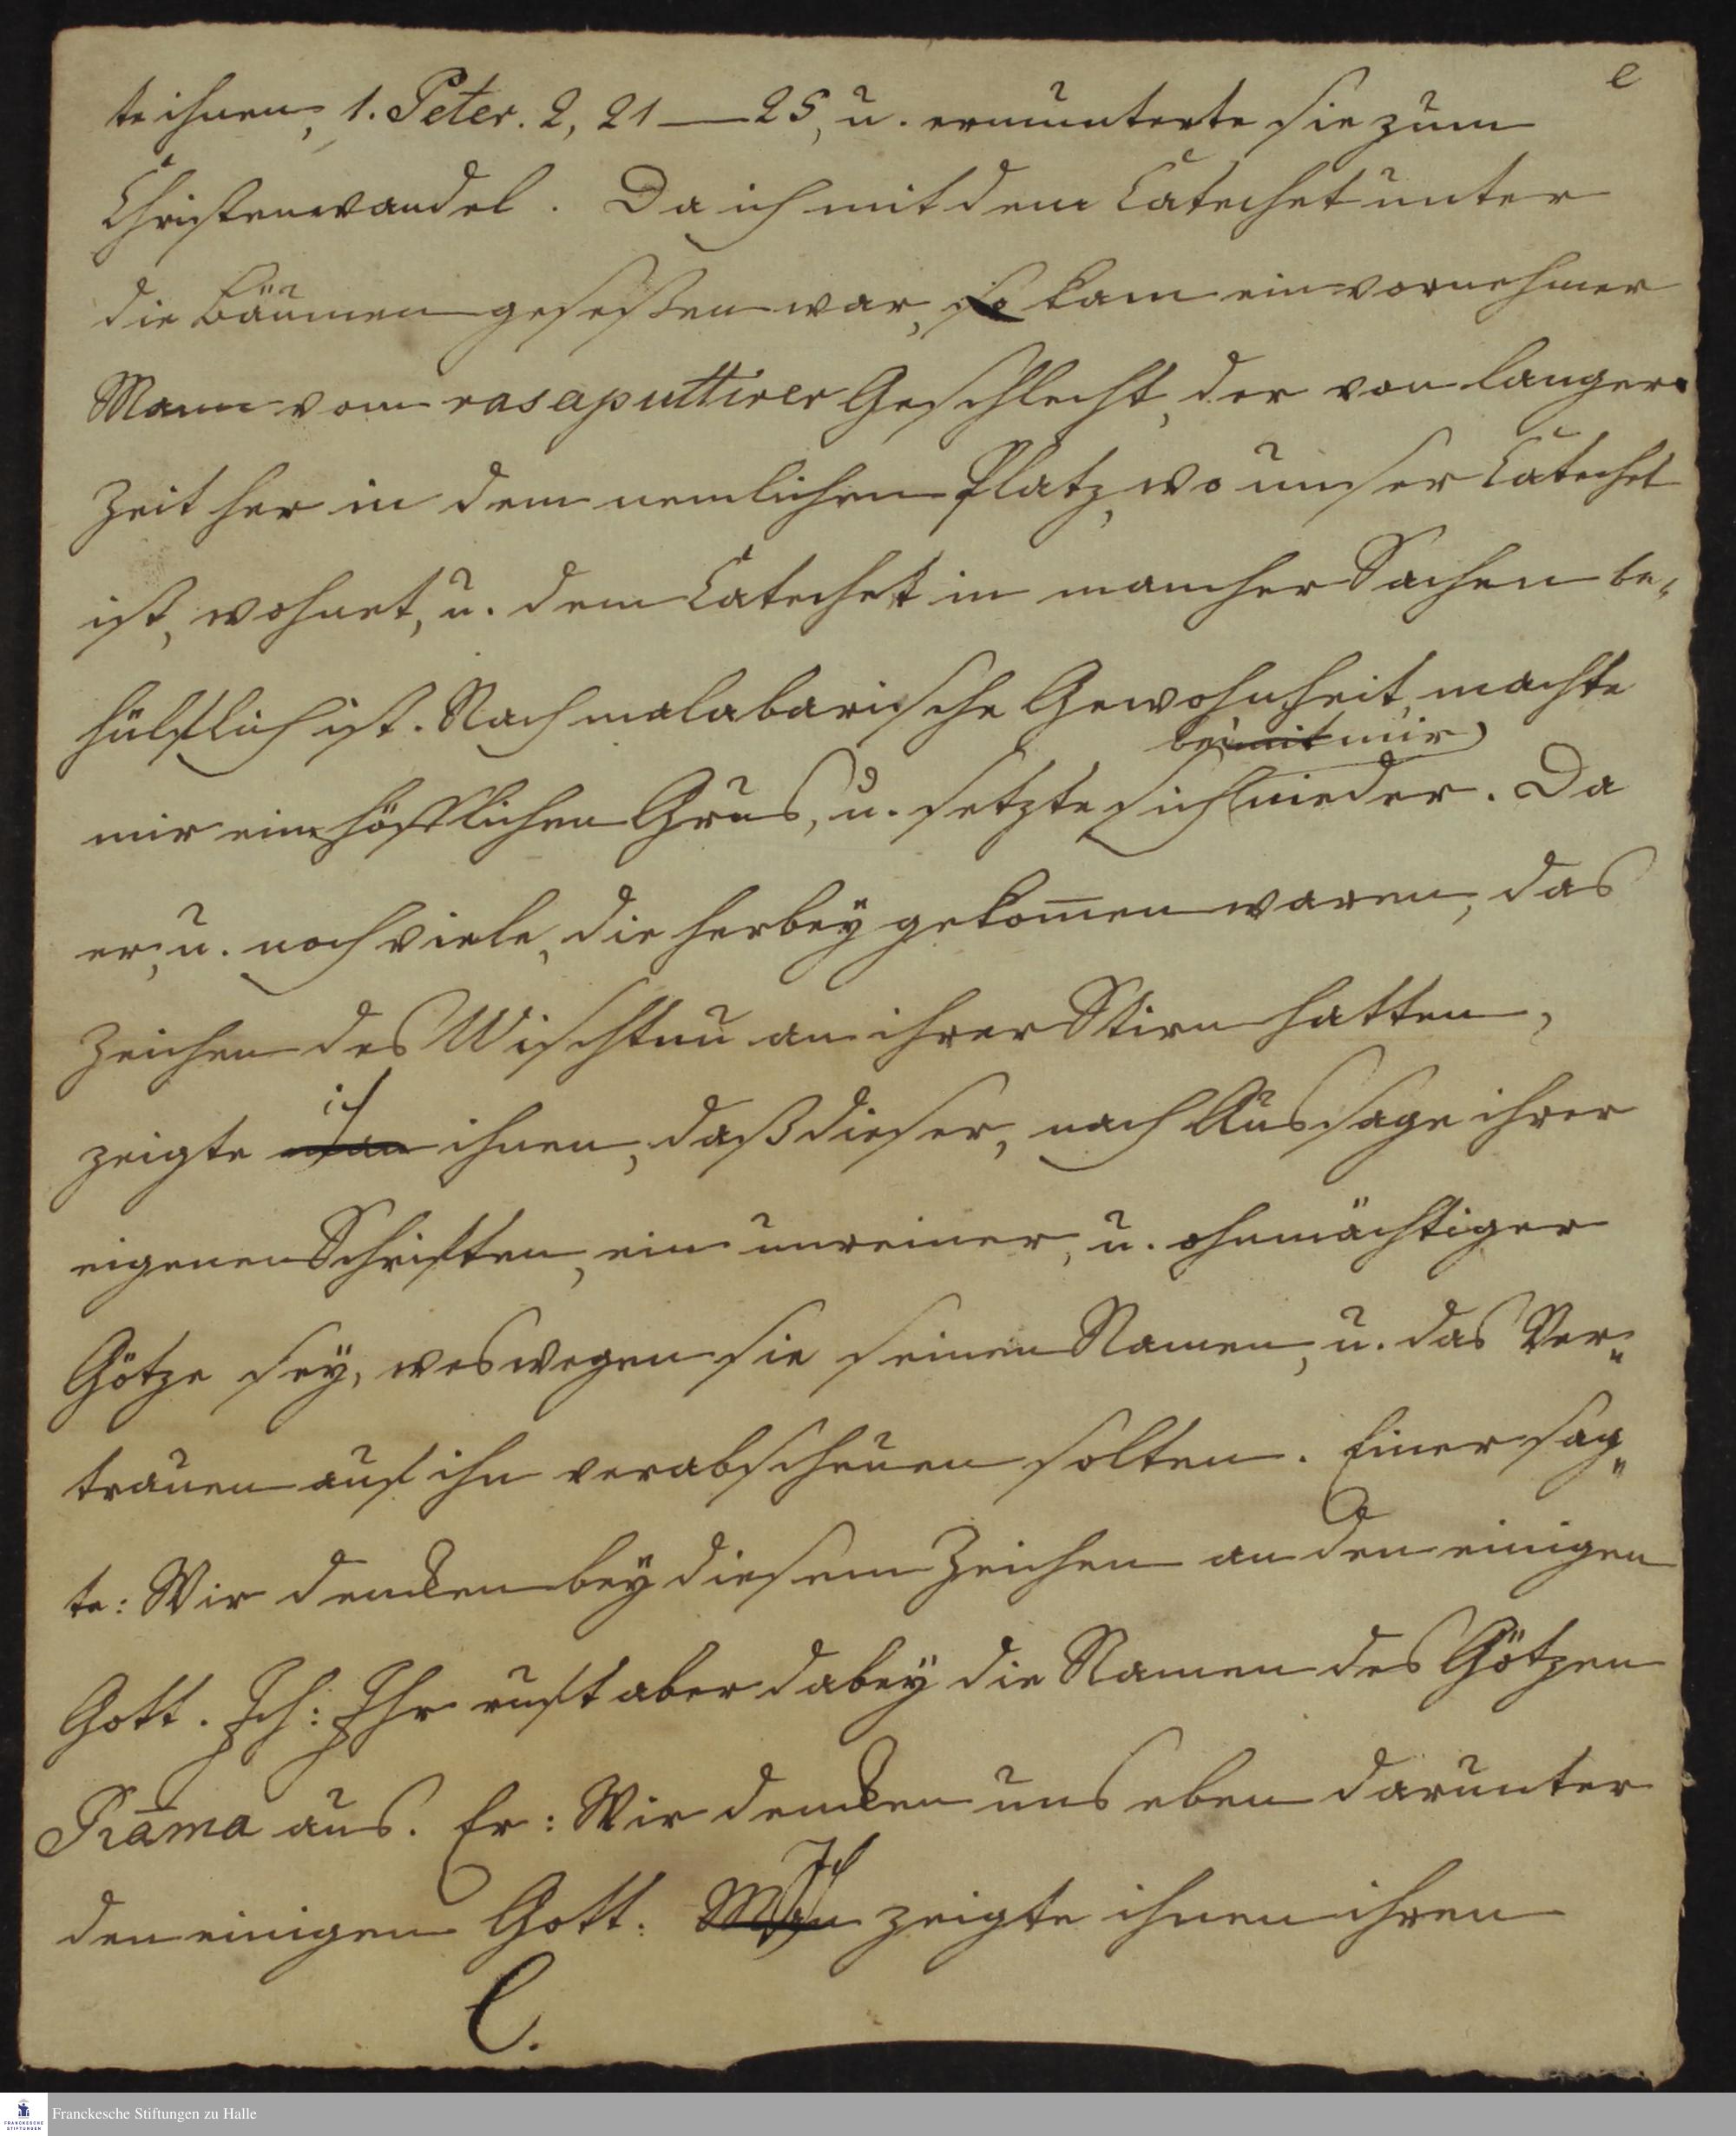 e
te ihnen, 1. Peter. 2, 21 — 25, u. ermunterte sie zum
Christenwandel. Da ich mit dem Catechet unter
die Bäumen geseßen war, so kam ein vornehmer
Mann vom rasaputtirer Geschlecht, der von langer
Zeit her in dem nemlichen Platz, wo unser Catechet
ist, wohnet, u. dem Catechet in mancher Sachen be-
hülflich ist. Nach malabarische Gewohnheit, machte
bei mit mir
mir ein höfflichen Grus, u. setzte sich nieder. Da
er, u. noch viele, die herbey gekom̅en waren, das
Zeichen des Wischtnu an ihrer Stirn hatten,
ich
zeigte man ihnen, daß dieser, nach Aussage ihrer
eigenen Schriften, ein unreiner, u. ohnmächtiger
Götze sey, weswegen sie seinen Namen, u. das Ver-
trauen auf ihn verabscheuen solten. Einer sag-
te: Wir dencken bey diesem Zeichen an den einigen
Gott. Ich: Ihr ruft aber dabey die Namen des Götzen
Rāma aus. Er: Wir dencken uns eben darunter
Ich
den einigen Gott. Man zeigte ihnen ihren
C.
FRANCKESCHE STIFTUNGEN
Franckesche Stiftungen zu Halle